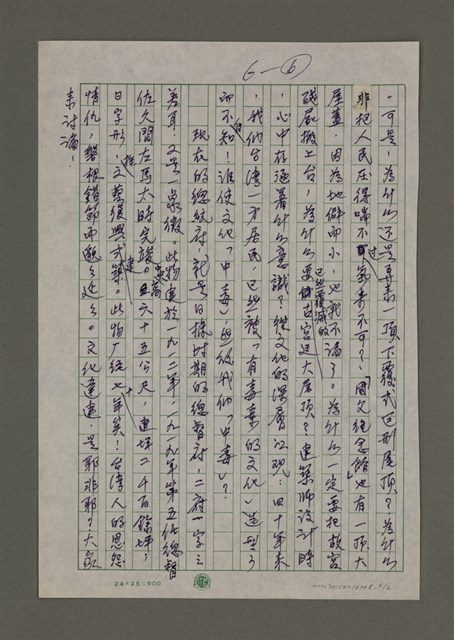 6—⑥
，可是，為什么还是再來一頂下覆式巨形屋頂？為什么
非把人民压得喘不过氣來不可？「國父紀念館」也有一頂大
屋蓋，因為地僻而小，也就不論了。為什么一定要把故宮
殘屍搬上台，為什么要已經覆滅的古宮廷大屋頂？建築師設計時
，心中在涵著什么意識？從文化的深層以观，四十年來
，我们台湾一方居民，已經被「有毒素的文化」造型了
而不自知！誰使文化「中毒」，與給我们「中毒」？
現在的總統府，就是日據時期的總督府，二府一字之
差耳，又是一象徵。此物建於一九一二年，一九一九年第五任總督
佐久間左馬太時完竣。是高六十五公尺，建坪二千百餘坪，
日字形，文藝復興式建築。此物广经七十年矣！台湾人的恩怨
情仇，盤根錯節而颺颺近近。文化違建，是耶非耶？大家
來討論！
24×25=600